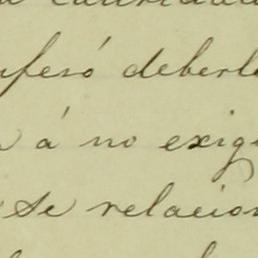 cantidad
nfesó deberle
á no exigi
se relacion